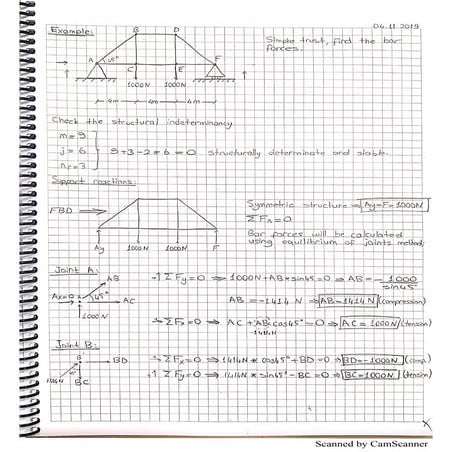 Example:
04.11.2019
Simple truss, find the bar
forces.
B D
A 45° F
C E
1000N 1000N
4m 4m 4m
Check the structural indeterminancy
m = 9
j = 6
nr = 3
9+3-2*6=0 Structurally determinate and stable.
Support reactions:
FBD
Ay 1000N 1000N F
Symmetric structure ⇒ Ay=F=1000N
ΣFx=0
Bar forces will be calculated
using equilibrium of joints method.
Joint A:
AB
Ax=0 45° AC
1000N
+↑ΣFy=0 ⇒ 1000N+AB*sin45=0 ⇒ AB=-1000/sin45°
AB=-1414N ⇒ AB=1414N (compression)
ΣFx=0 ⇒ AC+AB*cos45°=0 ⇒ AC=1000N (tension)
-1414N
Joint B:
B BD
45°
1414N BC
ΣFx=0 ⇒ 1414N*cos45°+BD=0 ⇒ BD=-1000N (comp.)
+↑ΣFy=0 ⇒ 1414N*sin45°-BC=0 ⇒ BC=1000N (tension)
Scanned by CamScanner